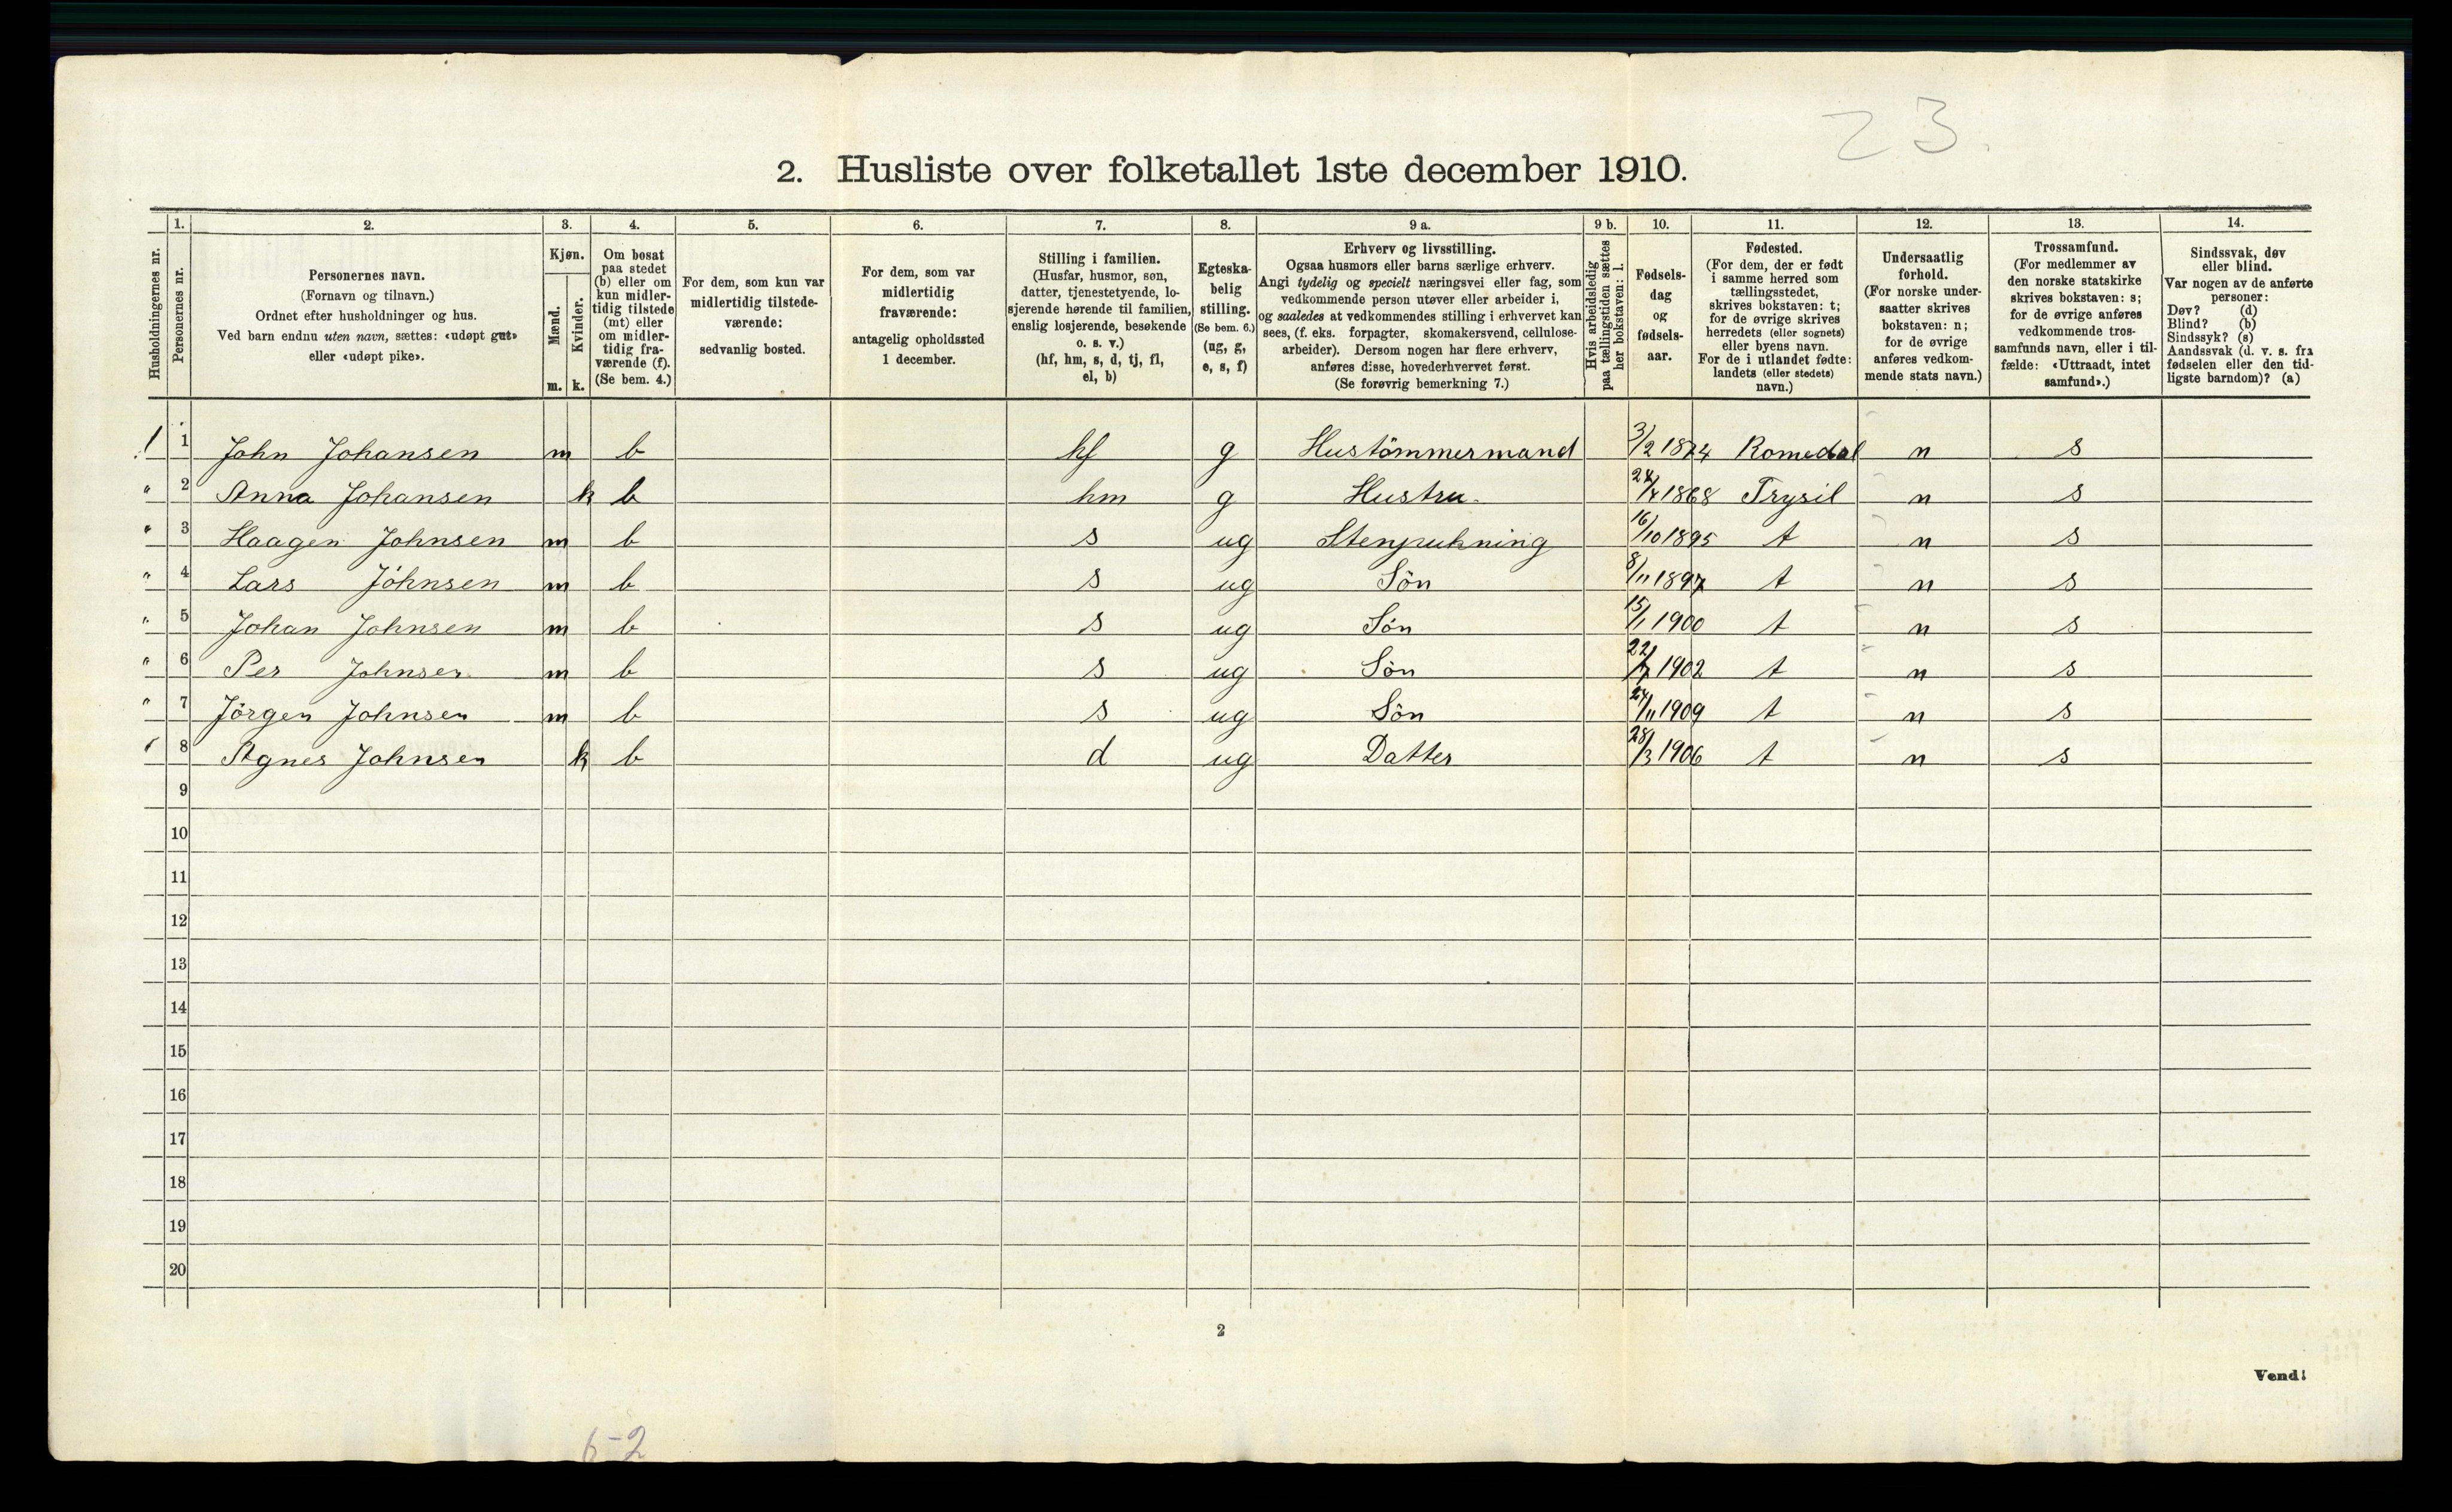 23.
2. Husliste over folketallet 1ste december 1910.
Husholdningernes nr.
1.
Personernes nr.
2.
Personernes navn.
(Fornavn og tilnavn.)
Ordnet efter husholdninger og hus.
Ved barn endnu uten navn, sættes: «udøpt gut»
eller «udøpt pike».
3.
Kjøn.
Mænd.
Kvinder.
m. k.
4.
Om bosat
paa stedet
(b) eller om
kun midler-
tidig tilstede
(mt) eller
om midler-
tidig fra-
værende (f).
(Se bem. 4.)
5.
For dem, som kun var
midlertidig tilstede-
værende:
sedvanlig bosted.
6.
For dem, som var
midlertidig
fraværende:
antagelig opholdssted
1 december.
7.
Stilling i familien.
(Husfar, husmor, søn,
datter, tjenestetyende, lo-
sjerende hørende til familien,
enslig losjerende, besøkende
o. s. v.)
(hf, hm, s, d, tj, fl,
el, b)
8.
Egteska-
belig
stilling.
(Se bem. 6.)
(ug, g,
e, s, f)
9 a.
Erhverv og livsstilling.
Ogsaa husmors eller barns særlige erhverv.
Angi tydelig og specielt næringsvei eller fag, som
vedkommende person utøver eller arbeider i,
og saaledes at vedkommendes stilling i erhvervet kan
sees, (f. eks. forpagter, skomakersvend, cellulose-
arbeider). Dersom nogen har flere erhverv,
anføres disse, hovederhvervet først.
(Se forøvrig bemerkning 7.)
9 b.
Hvis arbeidsledig
paa tællingstiden sættes
her bokstaven: l.
10.
Fødsels-
dag
og
fødsels-
aar.
11.
Fødested.
(For dem, der er født
i samme herred som
tællingsstedet,
skrives bokstaven: t;
for de øvrige skrives
herredets (eller sognets)
eller byens navn.
For de i utlandet fødte:
landets (eller stedets)
navn.)
12.
Undersaatlig
forhold.
(For norske under-
saatter skrives
bokstaven: n;
for de øvrige
anføres vedkom-
mende stats navn.)
13.
Trossamfund.
(For medlemmer av
den norske statskirke
skrives bokstaven: s;
for de øvrige anføres
vedkommende tros-
samfunds navn, eller i til-
fælde: «Uttraadt, intet
samfund».)
14.
Sindssvak, døv
eller blind.
Var nogen av de anførte
personer:
Døv? (d)
Blind? (b)
Sindssyk? (s)
Aandssvak (d. v. s. fra
fødselen eller den tid-
ligste barndom)? (a)
1 1 John Johansen m b hf g Hustömmermand 3/2 1874 Romedal n s
" 2 Anna Johansen k b hm g Hustru. 1868 Trysil n s
" 3 Haagen Johnsen m b s ug Stenpukning 16/10 1895 t n s
" 4 Lars Johnsen m b s ug Sön 8/11 1897 t n s
" 5 Johan Johnsen m b s ug Sön 15/1 1900 t n s
" 6 Per Johnsen m b s ug Sön 22/7 1902 t n s
" 7 Jörgen Johnsen m b s ug Sön 24/11 1909 t n s
" 8 Agnes Johnsen k b d ug Datter 28/3 1906 t n s
9
10
11
12
13
14
15
16
17
18
19
20
2
Vend!
6-2